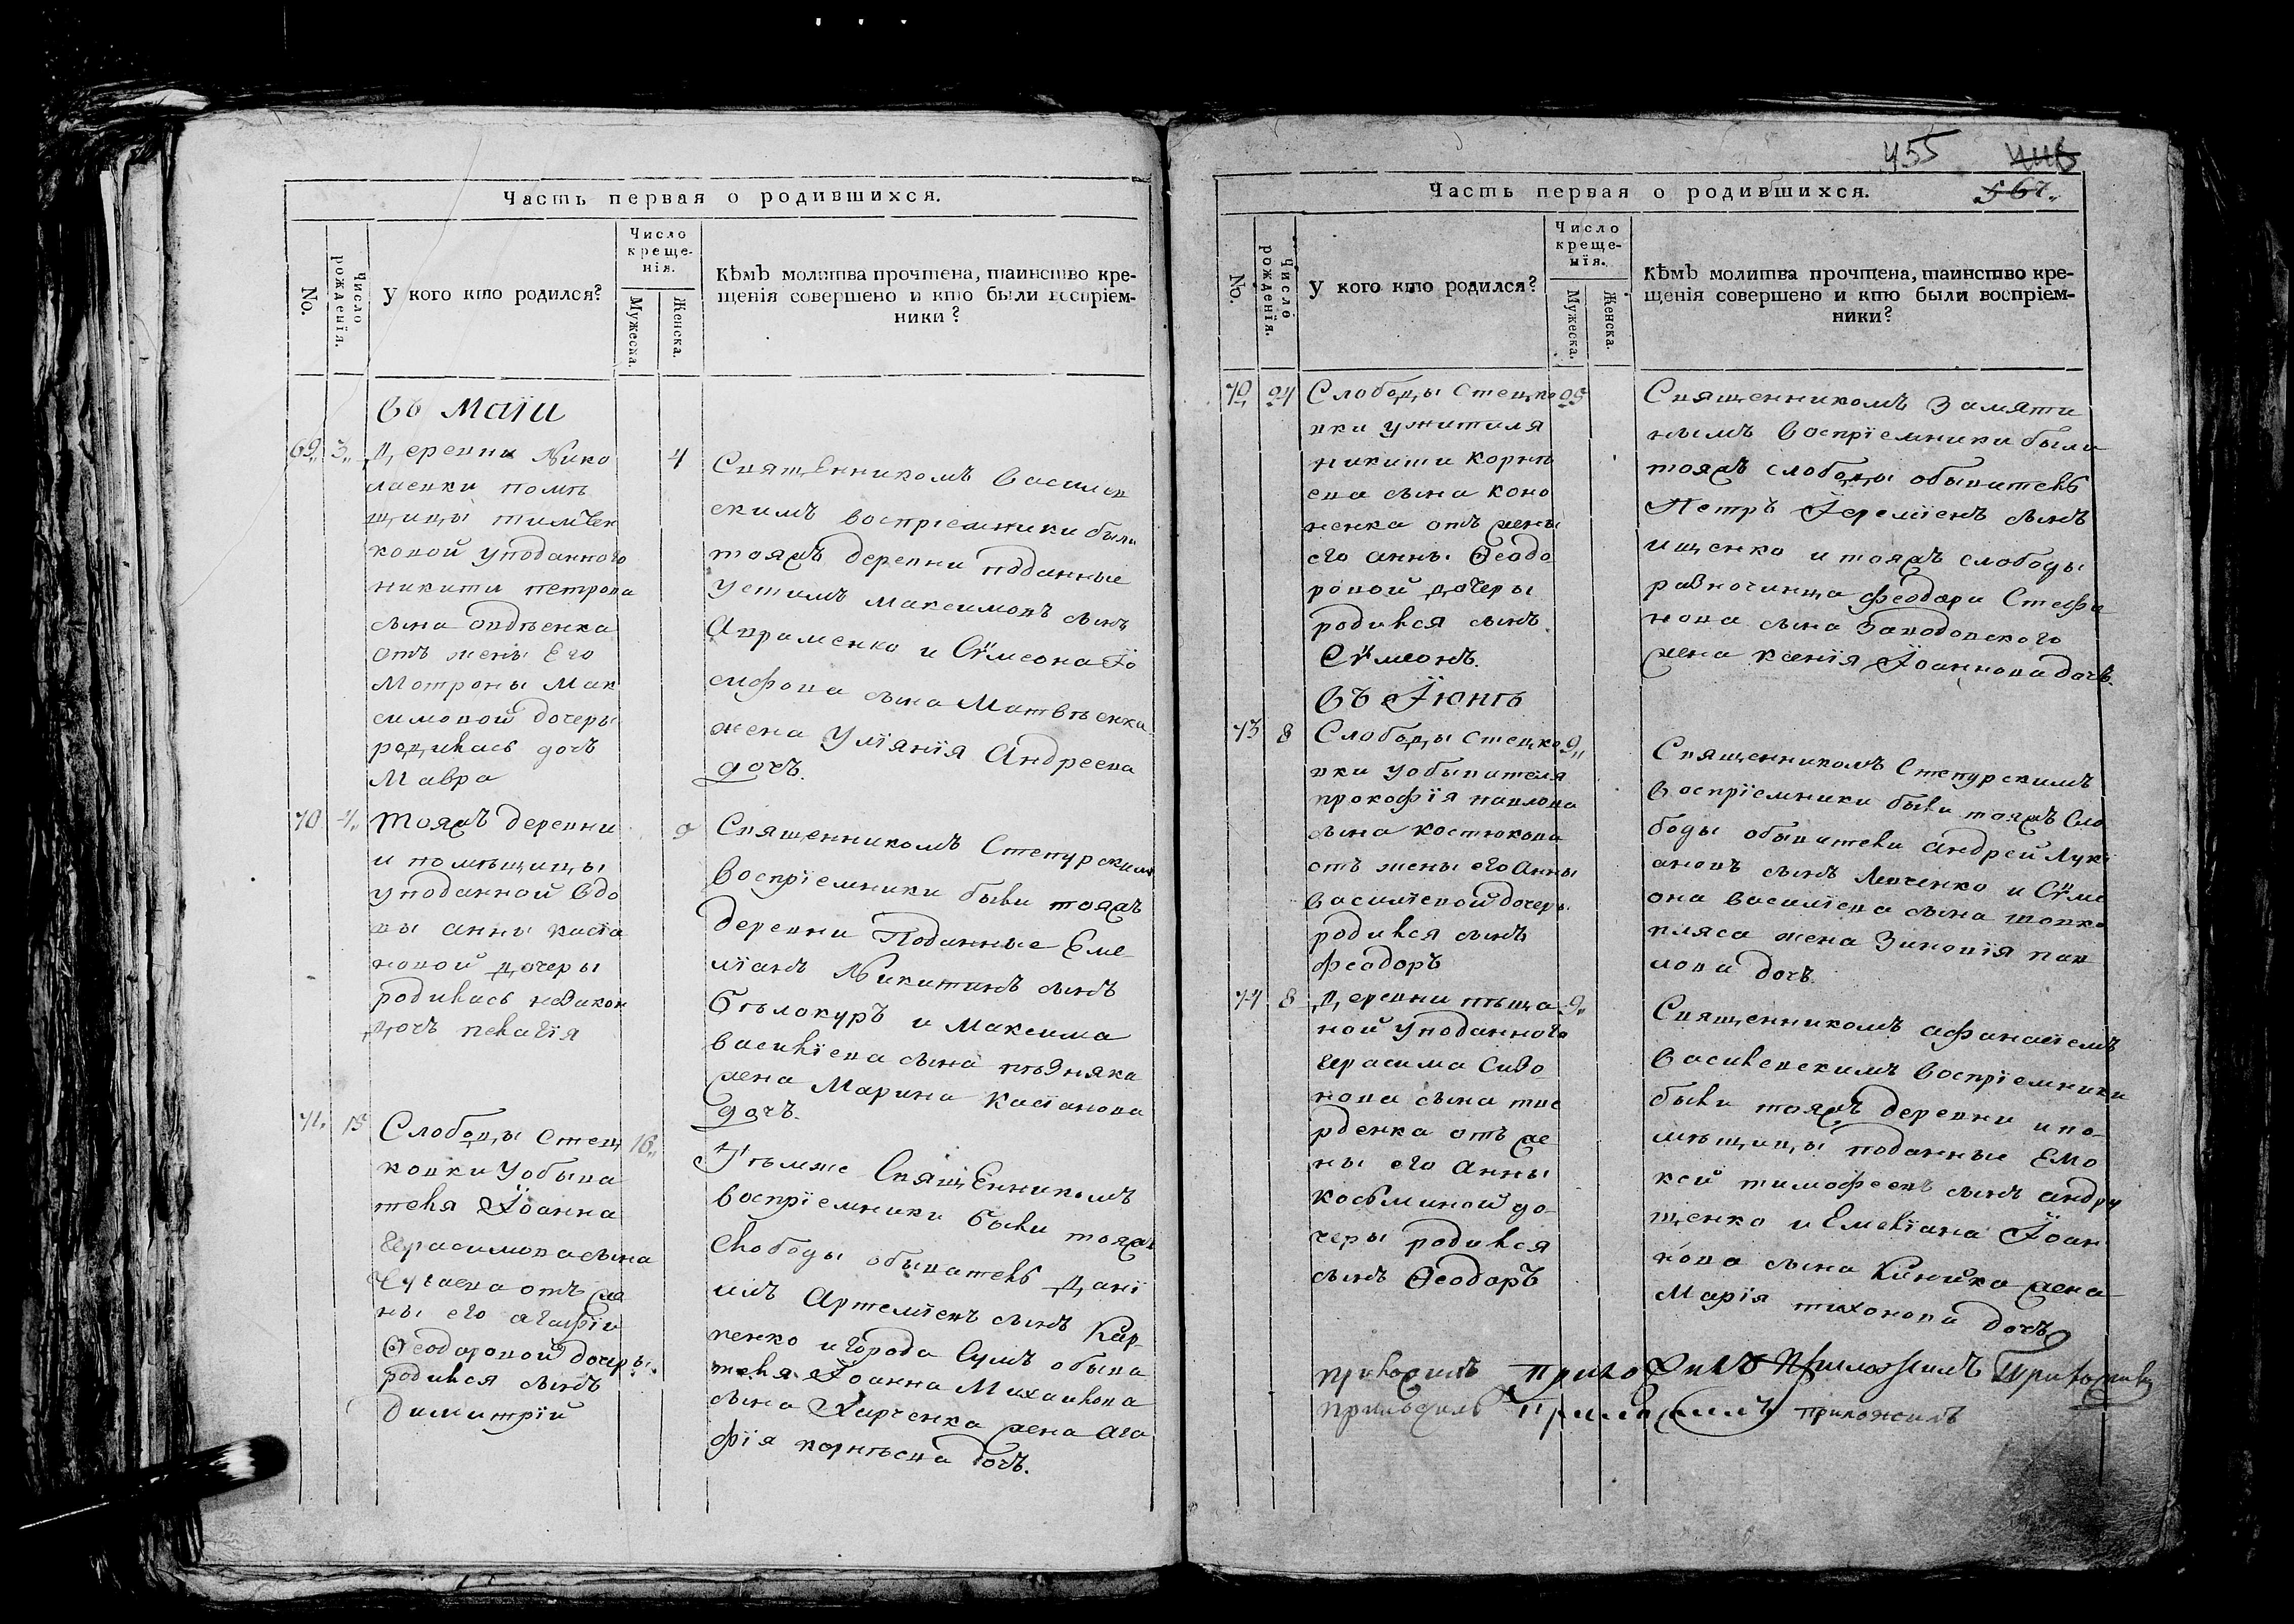 Часть первая о родившихся.
No.
Число рожденїя.
У кого кто родился?
Число
креще-
нїя.
Мужеска.
Женска.
Кѣмъ молитва прочтена, таинство кре-
щенїя совершено и кто были воспрїем-
ники?
въ маїи
69 3 Деревни Нико
лаевки помѣ
щицы
уподанного
никити петрова
сына
отъ жены Его
Мотроны Мак
симовой дочеры
родилась дочъ
Мавра
4
Священникомъ Василев
скимъ воспрїемники были
тояжъ деревни подданные
Устимъ максимовъ сынъ
Авраменко и Сѵмеона Їо
сифова сына Матвѣенка
жена Улїянїя Андреева
дочъ.
70 4 тояжъ деревни
и помѣщицы
уподанной вдо
вы анны касїа
новой дочеры
родилась незакон
дочъ пелагїя
9
Священникомъ Степурскимъ
воспрїемники были тояжъ
деревни Поданные Еме
лїанъ Никитинъ сынъ
бѣлокуръ и Максима
василїева сына
жена Марина Касїанова
дочъ.
71 15 Слободы стец
ковки у обыва
теля Їоанна
Герасимова сына
отъ же
ны его агафїи
Ѳеодоровой дочеры
родился сынъ
димитрїй
16
тѣмже СвящЕнникомъ
воспрїемники были тояжъ
слободы обыватель Данї
илъ Артемїевъ сынъ Кар
пенко и города Сумъ обыва
теля Їоанна Михаилова
сына Харченка жена ага
фїя корнѣева дочъ.
455
567
Часть первая о родившихся.
No.
Число рожденїя.
У кого кто родился?
Число
креще-
нїя.
Мужеска.
Женска.
Кѣмъ молитва прочтена, таинство кре-
щенїя совершено и кто были воспрїем-
ники?
24 Слободы стецко 25
вки у жителя
никити корнѣ
ева сына коно
ненка отъ жены
его анны Ѳеодо
ровой дочеры
родился сынъ
Сѵмеонъ.
Священникомъ Замяти
нымъ воспрїемники были
тояжъ слободы обыватель
Петръ Їеремїевъ сынъ
ищенко и тояжъ слободы
разночинца феодора Стефа
нова сына Заводовского
жена ксенїя Їоаннова дочъ.
въ Їюнѣ
73 8 Слободы стецко 9
вки у обывателя
прокофїя павлова
сына костюкова
отъ жены его Анны
василїевой дочеры
родился сынъ
феодоръ
Священникомъ Степурскимъ
воспрїемники были тояжъ Сло
боды обыватели андрей Луки
ановъ сынъ и Сѵме
она василїева сына
пляса жена Зиновїя пав
лова дочъ.
74 8 Деревни пѣща 9
ной уподанного
Герасима Сидо
рова сына
отъ же
ны его анны
косьминой до
черы родился
сынъ Ѳеодоръ
Священникомъ афанасїемъ
василевскимъ воспрїемники
были тояжъ деревни и по
мѣщицы поданные
тимофеевъ сынъ андру
щенко и Емелїана Їоан
нова сына жена
Марїя тихонова дочъ
приходилъ
приложилъ